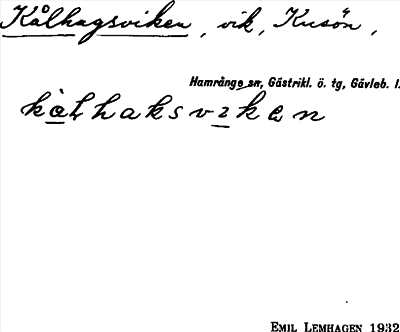 Kålhagsviken, vik, Kusön,
Hamrånge sn, Gästrikl. ö. tg, Gävleb. l.
kòlhaksvıken
EMIL LEMHAGEN 1932